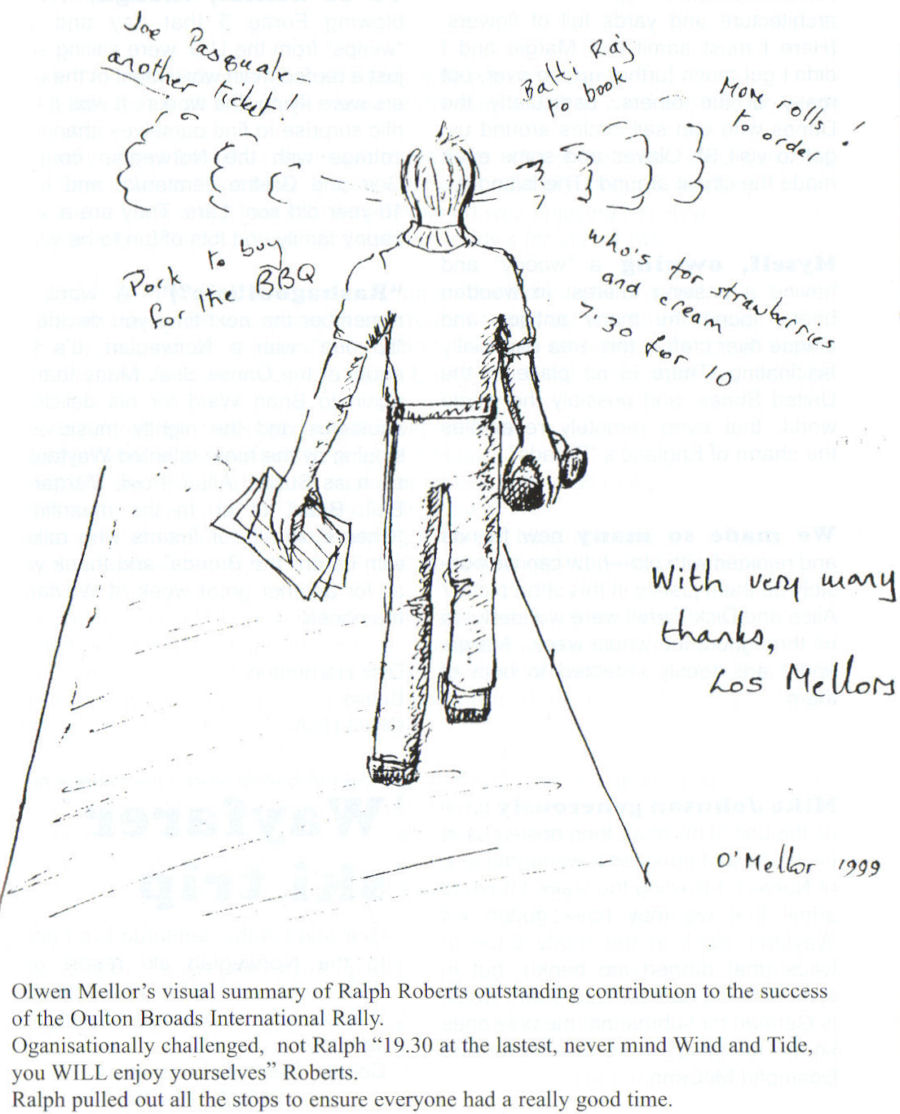 Joe Pasquale
another
ticket!
Balti Raj
to book
Max rolls!
to order
Pork to buy
for the BBQ
who's for strawberries
and cream
7:30
for 10
With very many
thanks,
Los Mellors
O'Mellor 1999
Olwen Mellor's visual summary of Ralph Roberts outstanding contribution to the success
of the Oulton Broads International Rally.
Oganisationally challenged, not Ralph "19.30 at the lastest, never mind Wind and Tide,
you WILL enjoy yourselves" Roberts.
Ralph pulled out all the stops to ensure everyone had a really good time.